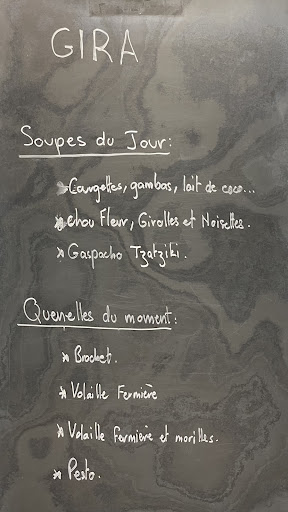 GIRA
Soupes du Jour:
* Courgettes, gambas, lait de coco...
* Chou Fleur, Girolles et Noisettes.
* Gaspacho Tzatziki.
Quenelles du moment:
* Brochet.
* Volaille Fermière
* Volaille Fermière et morilles.
* Pesto.